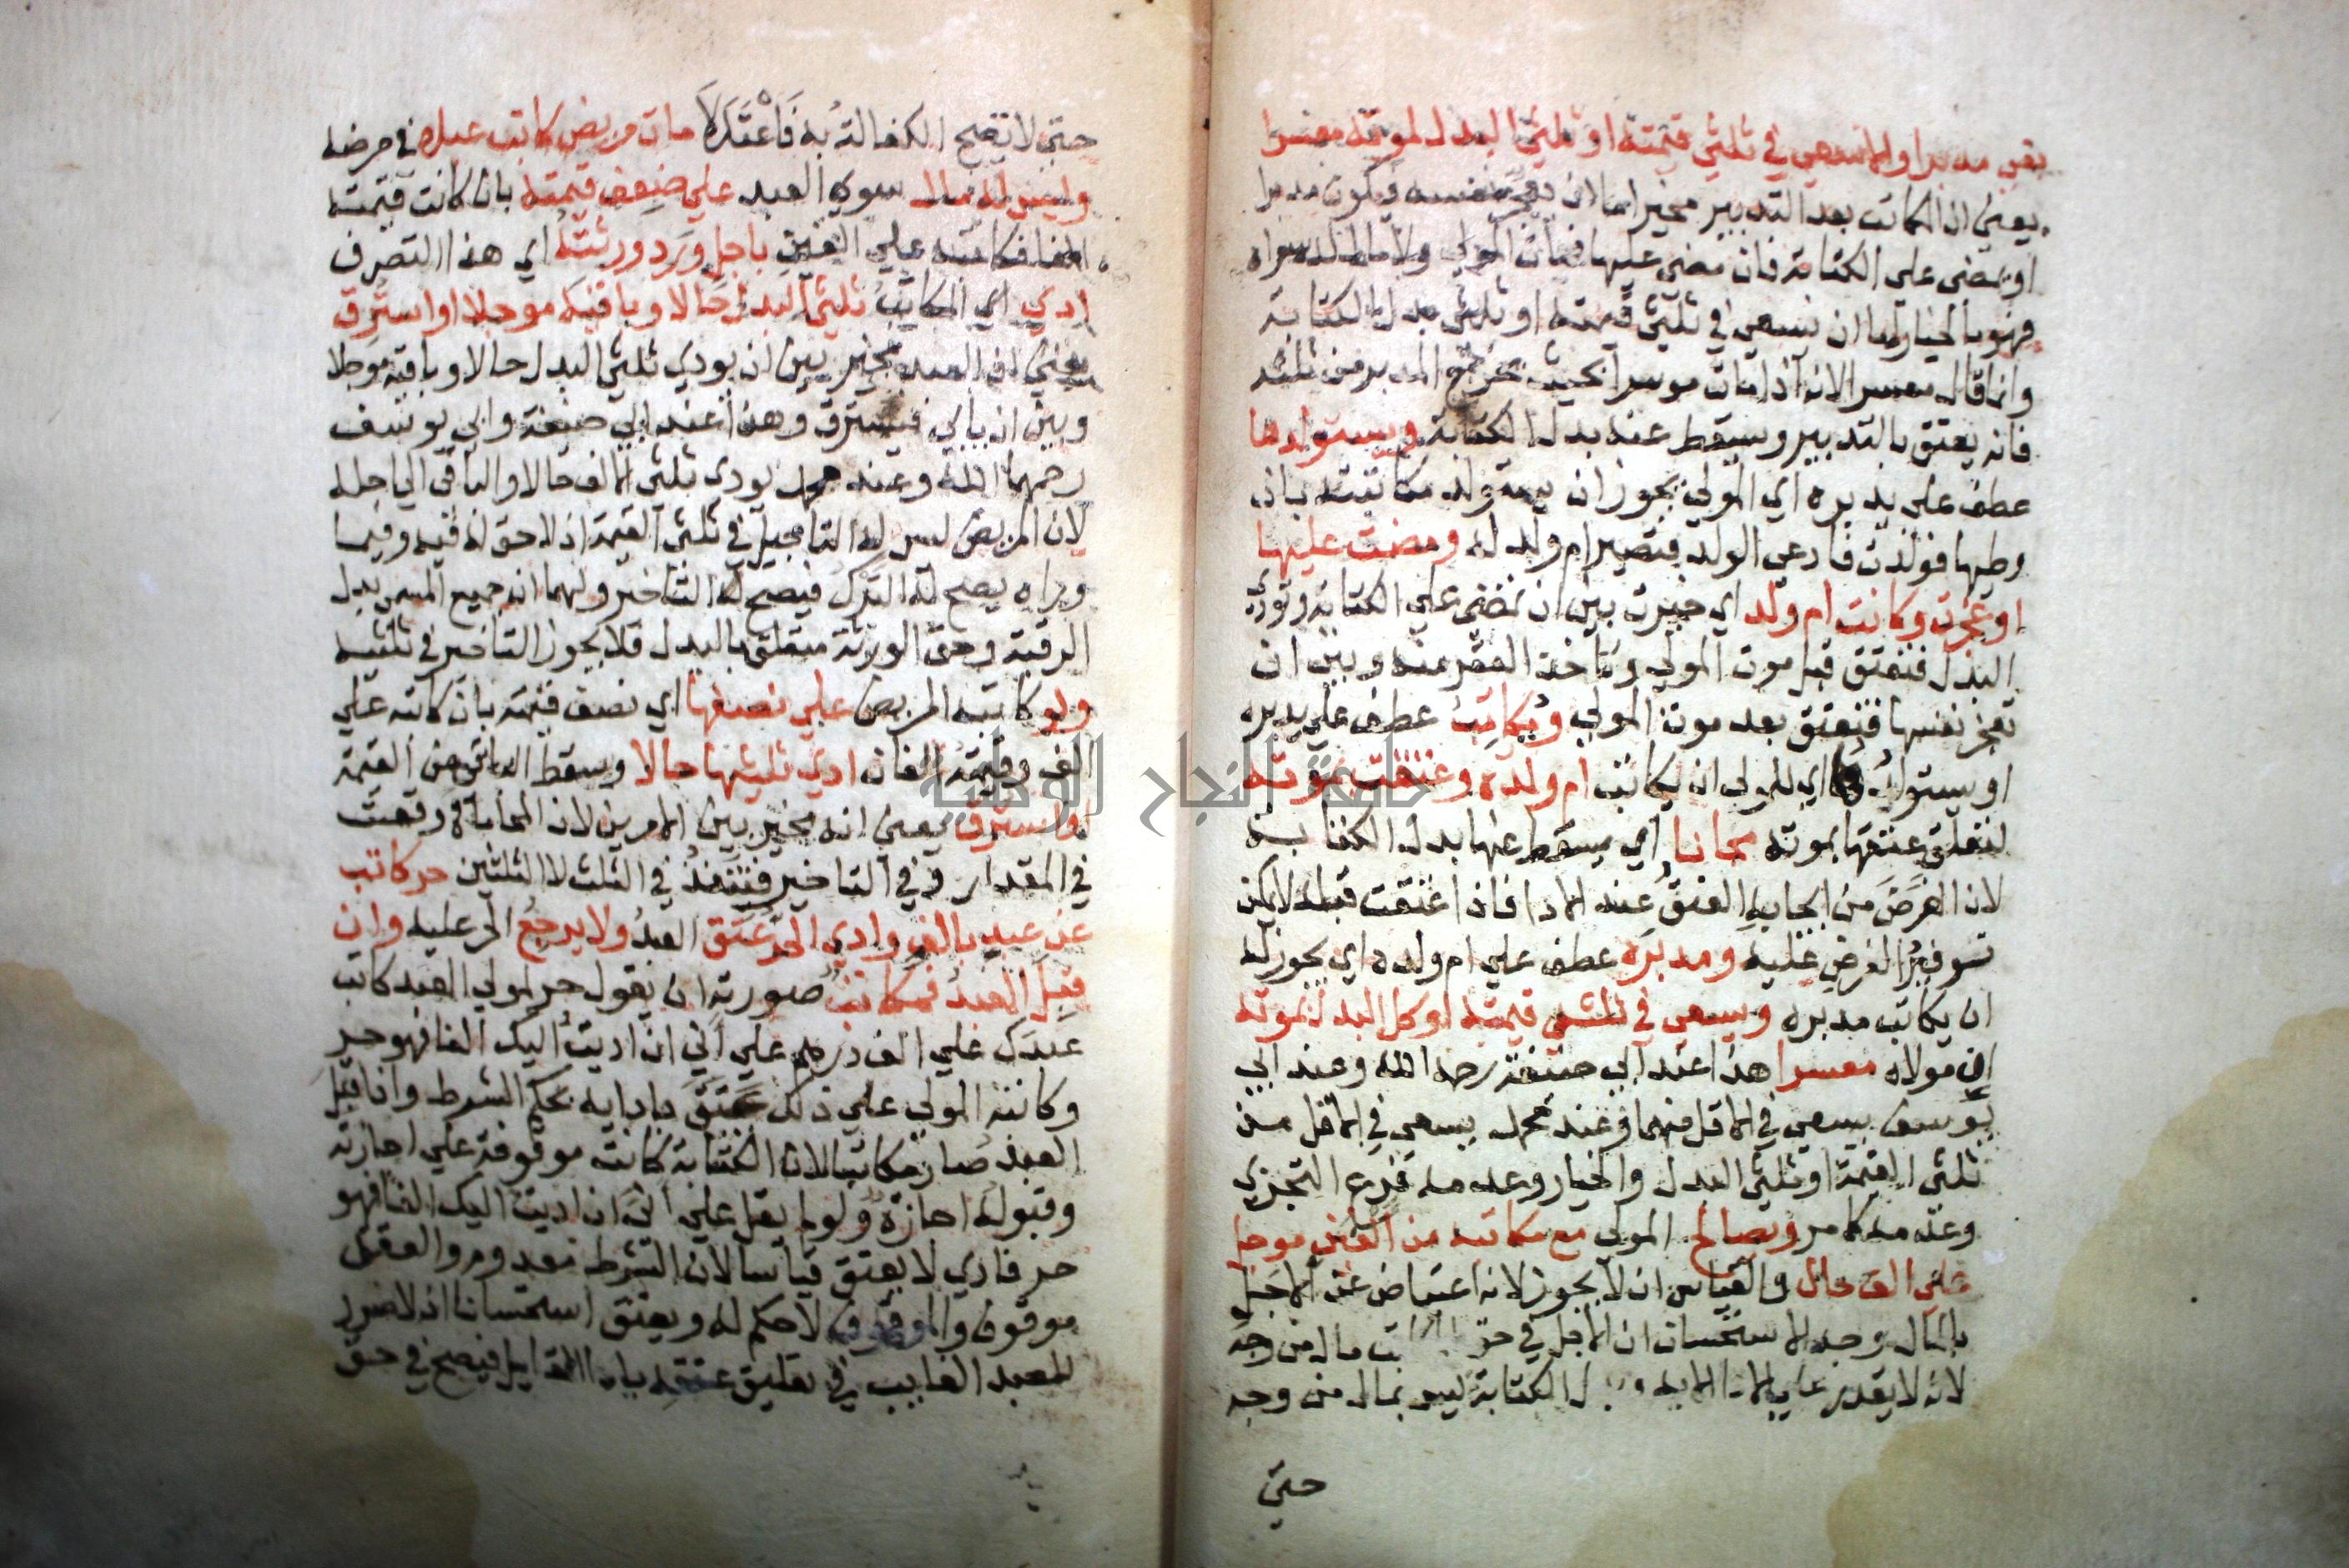 بقي مدبرا والا سعي في ثلثي قيمته او ثلثي البدل لموته معسرا
يعني ان المكاتب بعد التدبير مخير اما ان يعجز نفسه فيكون مدبرا
او يمضي علي الكتابة فان مضي عليها فمات المولي ولا مال له سواه
فهو بالخيار اما ان يسعي في ثلثي قيمته او ثلثي بدل الكتابة
وانما قال معسرا لانه اذا مات موسرا بحيث يخرج المدبر من ثلثه
فانه يعتق بالتدبير وسقط عنه بدل الكتابة ويستولدها
عطف علي يدبره اي المولي يجوز ان يستولد مكاتبته بان
وطيها فولدت فادعي الولد فتصير ام ولد له ومضت عليها
او عجزت وكانت ام ولد اي خيرت بين ان تمضي علي الكتابة وتودي
البدل فتعتق قبل موت المولي وتاخذ العقر منه وبين ان
تعجز نفسها فتعتق بعد موت المولي ويكاتب عطف علي يدبره
او يستولد اي للمولي ان يكاتب ام ولده وعتقت بموته
لتعلق عتقها بموته مجانا اي يسقط عنها بدل الكتابة
لان الغرض من ايجابه العتق عند الادا فاذا عتقت قبله لا يمكن
توفير الغرض عليه ومدبره عطف علي ام ولده اي يجوز له
ان يكاتب مدبره ويسعي في ثلثي قيمته او كل البدل بموته
اي مولاه معسرا هذا عند ابي حنيفة رحمه الله وعند ابي
يوسف يسعي في الاقل منهما وعند محمد يسعي في الاقل من
ثلثي القيمة او ثلثي البدل والخيار وعدمه فرع التجزي
وعدمه كما مر ويصالح المولي مع مكاتبه من الفين موجل
علي الف حال والقياس ان لا يجوز لانه اعتياض عن الاجل
بالمال وجه الاستحسان ان الاجل في حق مال من وجه
لانه لا يقدر علي الادا الا به الكتابة ليس بمال من وجه
حتي
حتي لا تصح الكفالة به فاعتدلا مات مريض كاتب عبده في مرضه
وليس له مال سوي العبد علي ضعف قيمته بان كانت قيمته
الفا فكاتبه علي الفين باجل ورد ورثته اي هذا التصرف
ادي اي المكاتب ثلثي البدل حالا وباقيه موجلا او استرق
يعني ان العبد مخير بين ان يودي ثلثي البدل حالا وباقيه موجلا
وبين ان يابي فيسترق وهذا عند ابي حنيفة وابي يوسف
رحمهما الله وعند محمد يودي ثلثي الالف حالا والباقي الي اجله
لان المريض ليس له التاجيل في ثلثي القيمة اذ لا حق له فيه وفيما
وراه يصح له الترك فيصح له التاخير ولهما ان جميع المسمي بدل
الرقبة وحق الورثة متعلق بالبدل فلا يجوز التاخير في ثلثيه
ولو كاتبه المريض علي نصفها اي نصف قيمته بان كاتبه علي
الف وقيمته الفان ادي ثلثيها حالا وسقط الباقي من القيمة
او استرق يعني انه مخير بين الامرين لان المحاباة وقعت
في المقدار وفي التاخير فتنفذ في الثلث لا الثلثين حر كاتب
عن عبد بالف وادي الحر عتق العبد ولا يرجع الحر عليه وان
قبل العبد فمكاتب صورته ان يقول حر لمولي العبد كاتب
عبدك علي الف درهم علي اني ان اديت اليك الفا فهو حر
وكاتبه المولي علي ذلك عتق بادايه بحكم الشرط واذا قبل
العبد صار مكاتبا لان الكتابة كانت موقوفة علي اجازته
وقبوله اجازة ولو لم يقل علي اني ان اديت اليك الفا فهو
حر فادي لا يعتق قياسا لان الشرط معدوم والعقد
موقوف والموقوف لا حكم له ويعتق استحسانا اذ لا ضرر
للعبد الغايب في تعليق عتقه بادا القايل فيصح في حق
جامعة النجاح الوطنية